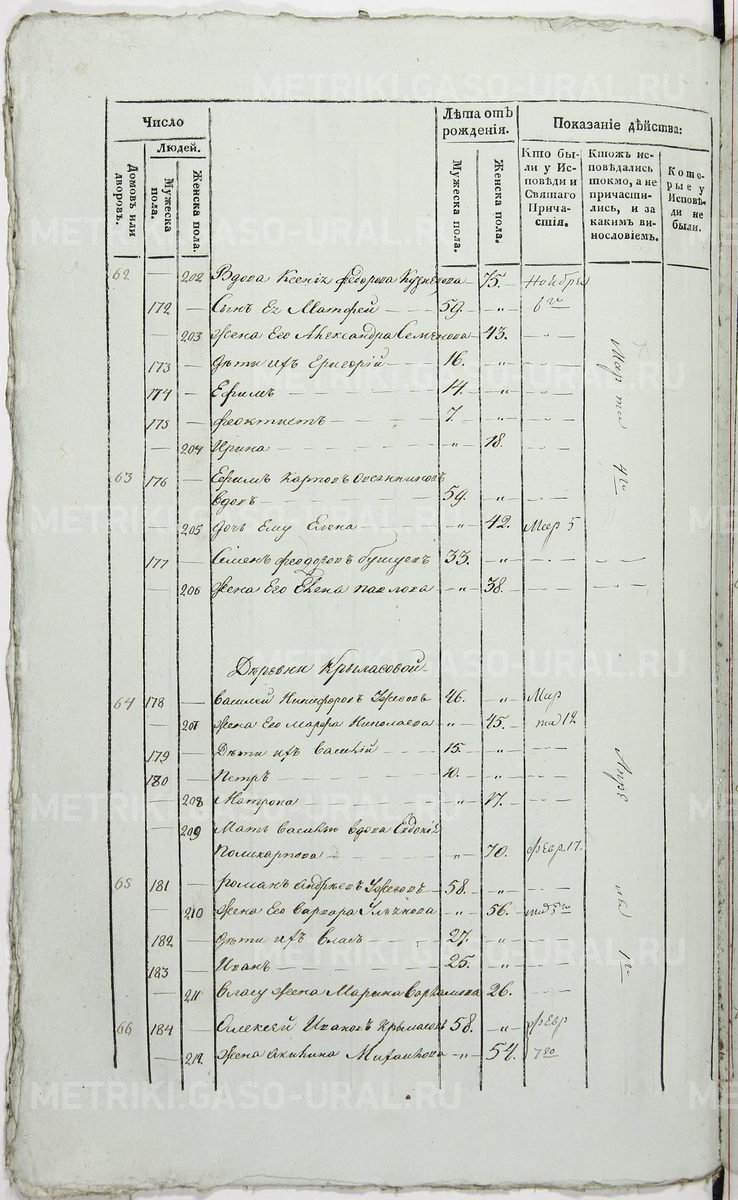 Число
Людей.
Домовъ или дворовъ.
Мужеска пола.
Женска пола.
Лѣта отъ рожденія.
Мужеска пола.
Женска пола.
Показаніе дѣйства:
Кто были у Исповѣди и Святаго Причастія.
Ктожъ исповѣдались токмо, а не причастились, и за какимъ винословіемъ.
Которые у Исповѣди не были.
62 — 202 Вдова Ксенія Федорова 75. Ноября
172 — Сынъ Ея Матфей 59. „ 6го
— 203 жена Его Александра Семенова 43.
173 — дѣти ихъ Григорій 16. „
174 — Ефимъ 14. „
175 — Феоктистъ 7. „
— 204 Ирина „ 18.
Марта 4го
63 176 — Ефимъ Карповъ
вдовъ 59. „
— 205 дочь Ему Елена „ 42. Мар 5
177 — Семенъ Феодоровъ 33. „
— 206 жена Его Елена Павлова „ 38.
Деревни Крыласовой
64 178 — Василей Никифоровъ Ужеговъ 46. „ Мар
— 207 жена Его Марфа Николаева „ 45. та 12
179 — Дѣти ихъ Василій 15. „
180 — Петръ 10. „
— 208 Матрона „ 17.
— 209 Мать Василью вдова Евдокія
Поликарпова „ 70. Февр 17.
Апрѣля 1го
65 181 — Романъ Андреевъ Ужеговъ 58. „
— 210 жена Его Варвара „ 56.
182 — дѣти ихъ Власъ 27. „
183 — Иванъ 25. „
— 211 Власу жена Марина Варламова 26.
66 184 — Алексѣй Ивановъ Крыласовъ 58. „ Февр
— 212 жена Акилина Михайлова „ 54. 7го
METRIKI.GASO-URAL.RU